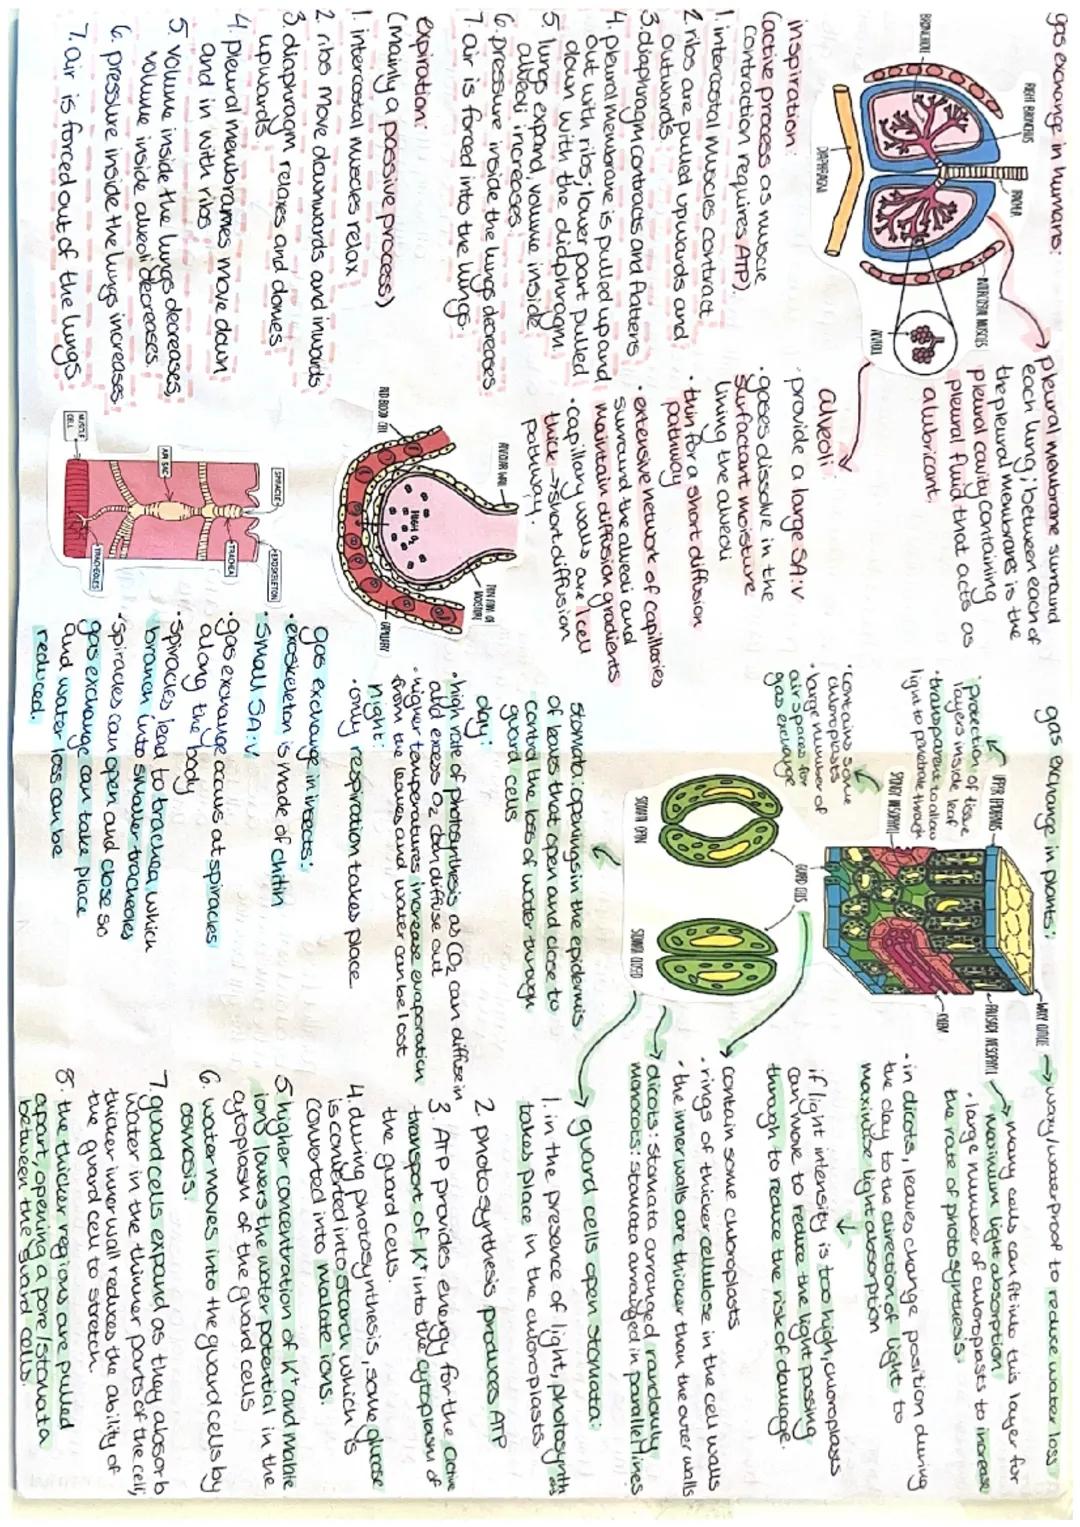 gas exchange in humans:
BRONCHIOLE
RIGHT BRONCHUS
TRACHEA
INTERCOSTAL MUSCLES
ALVEOLI
DIAPHRAGM
inspiration:
(active process as muscle
contraction requires ATP)
1. intercostal muscles contract
2. ribs are pulled upwards and
outwards
3. diaphragm contracts and flattens
4. pleural membrane is pulled up and
out with ribs; lower part pulled
down with the diaphragm
5. lungs expand, volume inside
alveoli increases
6. pressure inside the lungs decreases
7. air is forced into the lungs.
expiration:
(mainly a passive process)
1. intercostal muscles relax
2. ribs move downwards and inwards
3. diaphragm relaxes and domes
upwards
4. pleural membranes move down
and in with ribs
5. volume inside the lungs decreases,
volume inside alveoli decreases.
6. pressure inside the lungs increases
7. air is forced out of the lungs.
pleural membrane surround
each lung; between each of
the pleural membranes is the
pleural cavity containing
pleural fluid that acts as
a lubricant.
alveoli:
• provide a large SA:V
• gases dissolve in the
surfactant moisture
lining the alveoli
• thin for a short diffusion
pathway
• extensive network of capillaries
surround the alveoli and
maintain diffusion gradients
• capillary walls are 1 cell
thick → short diffusion
pathway.
ALVEOLAR WALL
THIN FILM OF
MOISTURE
HIGH O2
RED BLOOD CELL
CAPILLARY
SPIRACLE
EXOSKELETON
AIR SAC
TRACHEA
MUSCLE
CELL
TRACHEOLES
gas exchange in plants:
UPPER EPIDERMIS
• protection of tissue
layers inside leaf
• transparent to allow
light to penetrate through
SPONGY MESOPHYLL
• contains some
chloroplasts
• large number of
air spaces for
gas exchange
WAXY CUTICLE
PALISADE MESOPHYLL
XYLEM
GUARD CELLS
STOMATA OPEN
STOMATA CLOSED
stomata: openings in the epidermis
of leaves that open and close to
control the loss of water through
guard cells
day:
• high rate of photosynthesis as CO2 can diffuse in
and excess O2 can diffuse out
• higher temperatures increase evaporation
from the leaves and water can be lost
night:
• only respiration takes place
gas exchange in insects:
• exoskeleton is made of chitin
• small SA:V
• gas exchange occurs at spiracles
along the body
• spiracles lead to trachea which
branch into smaller tracheoles
• spiracles can open and close so
gas exchange can take place
and water loss can be
reduced.
→ waxy/waterproof to reduce water loss
→ many cells can fit into this layer for
maximum light absorption
• large number of chloroplasts to increase
the rate of photosynthesis.
• in dicots, leaves change position during
the day to the direction of light to
maximize light absorption
if light intensity is too high, chloroplasts
can move to reduce the light passing
through to reduce the risk of damage.
contain some chloroplasts
• rings of thicker cellulose in the cell walls
• the inner walls are thicker than the outer walls
→ dicots: stomata arranged randomly
monocots: stomata arranged in parallel lines
guard cells open stomata:
1. in the presence of light, photosynthesis
takes place in the chloroplasts.
2. photosynthesis produces ATP
3. ATP provides energy for the active
transport of K+ into the cytoplasm of
the guard cells.
4. during photosynthesis, some glucose
is converted into starch which is
converted into malate ions.
5. higher concentration of K+ and malate
ions lowers the water potential in the
cytoplasm of the guard cells
6. water moves into the guard cells by
osmosis.
7. guard cells expand, as they absorb
water in the thinner parts of the cell;
thicker inner wall reduces the ability of
the guard cell to stretch.
8. the thicker regions are pulled
apart, opening a pore/stomata
between the guard cells.